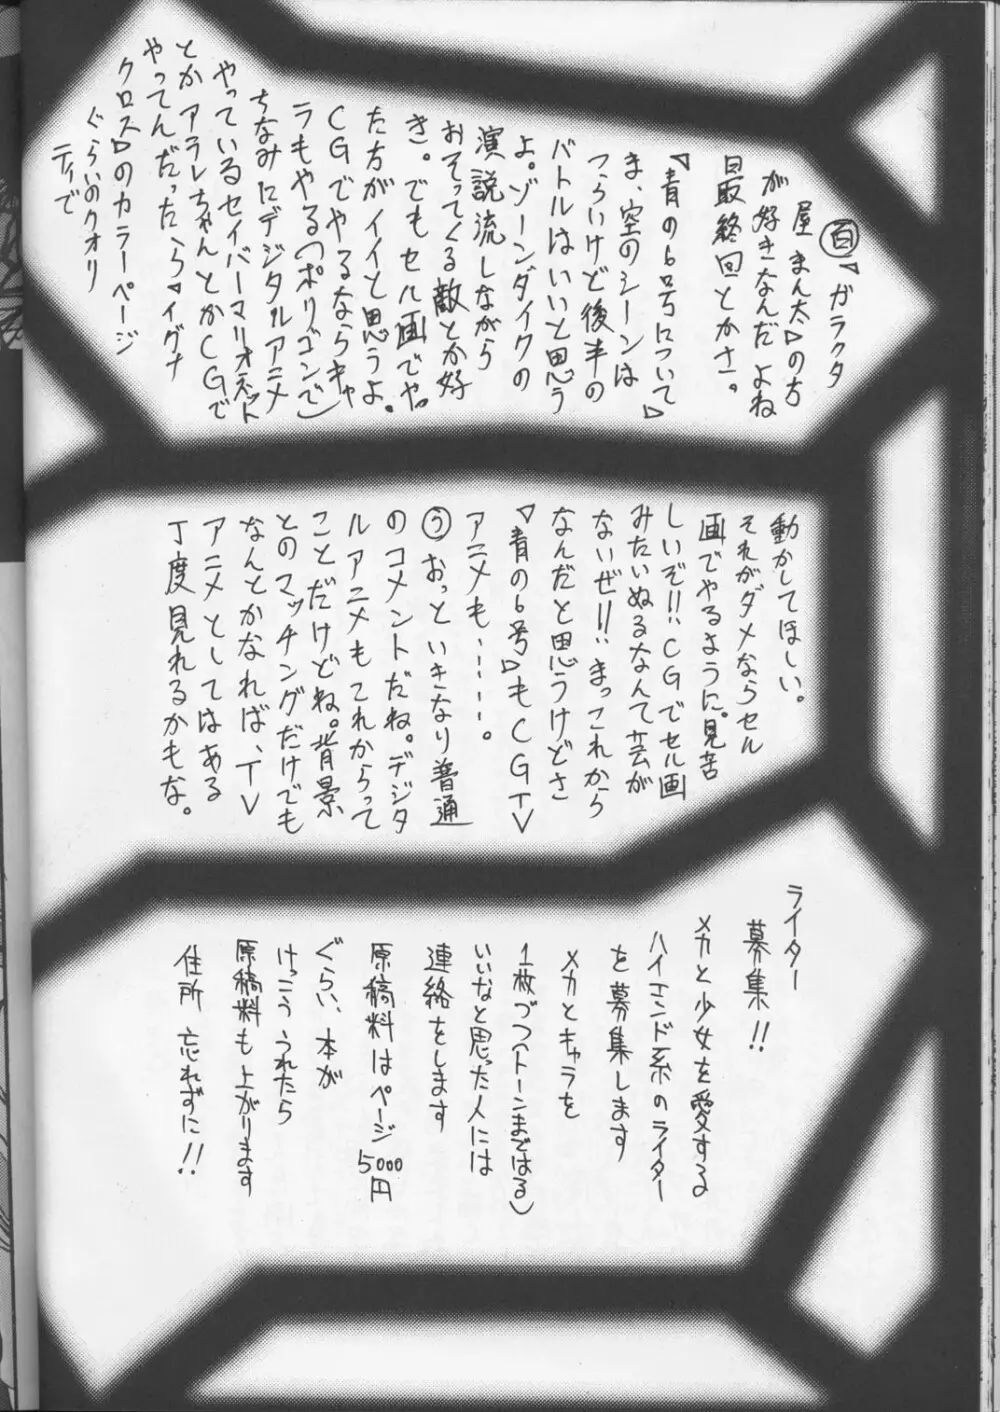 百「ガラクタ
屋まん太」の方
が好きなんだよね
最終回とかさ。
「青の6号について」
ま、空のシーンは
つらいけど後半の
バトルはいいと思う
よ。ゾーンダイクの
演説流しながら
おそってくる敵とか好
き。でもセル画でや
た方がイイと思うよ。
CGでやるならキャ
ラもやる(ポリゴンで)
ちなみにデジタルアニメ
やっているセイバーマリオネット
とかアラレちゃんとかCGで
やってんだったら「イグナ
クロス」のカラーページ
ぐらいのクオリ
ティで
動かしてほしい。
それがダメならセル
画でやるように。見苦
しいぞ!!CGでセル画
みたいぬるなんて芸が
ないぜ!!まっこれから
なんだと思うけどさ
「青の6号」もCGTV
アニメも・・・・・。
う おっといきなり普通
のコメントだね。デジタ
ルアニメもこれからって
ことだけどね。背景
とのマッチングだけでも
なんとかなれば、TV
アニメとしてはある
丁度見れるかもな。
ライター
募集!!
メカと少女を愛する
ハイエンド系のライター
を募集します
メカとキャラを
1枚づつ(トーンまではる)
いいなと思った人には
連絡をします
原稿料はページ5000円
ぐらい、本が
けっこううれたら
原稿料も上がります
住所 忘れずに!!